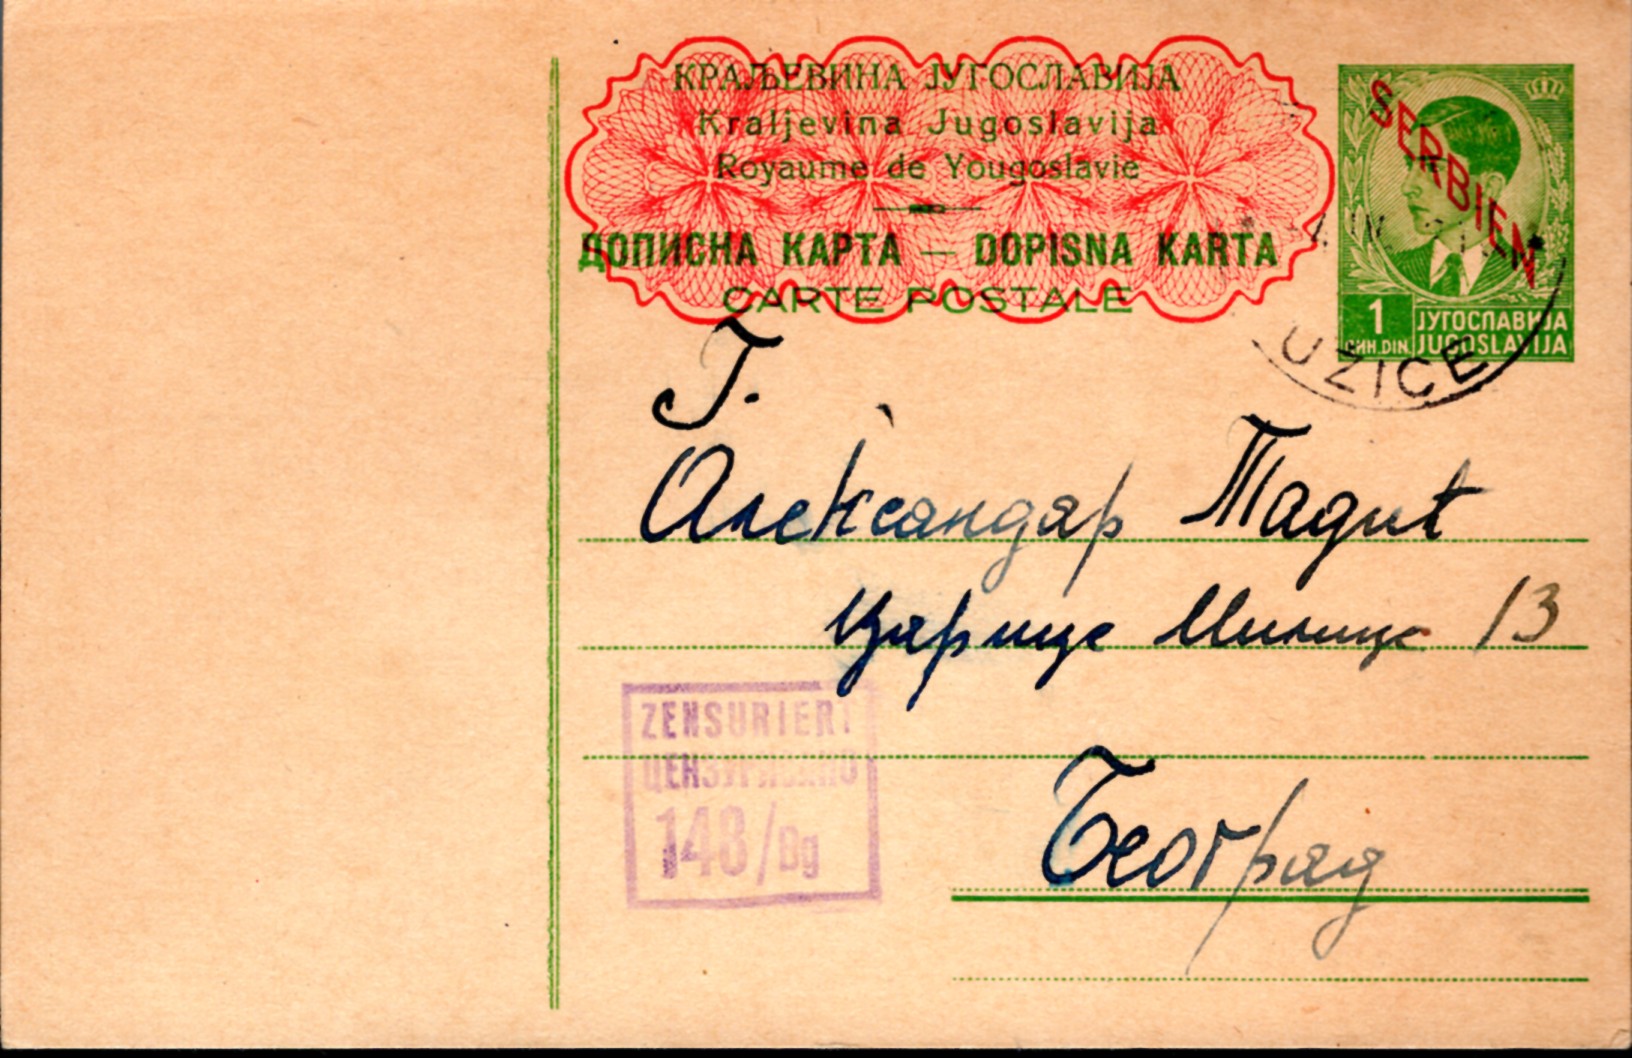 КРАЉЕВИНА ЈУГОСЛАВИЈА
Kraljevina Jugoslavija
Royaume de Yougoslavie
ДОПИСНА КАРТА — DOPISNA KARTA
CARTE POSTALE
SERBIEN
1
ДИН. DIN.
ЈУГОСЛАВИЈА
JUGOSLAVIJA
UZICE
Г.
Александар Тадић
Царице Милице 13
Београд
ZENSURIERT
ЦЕНЗУРИСАНО
148/Bg